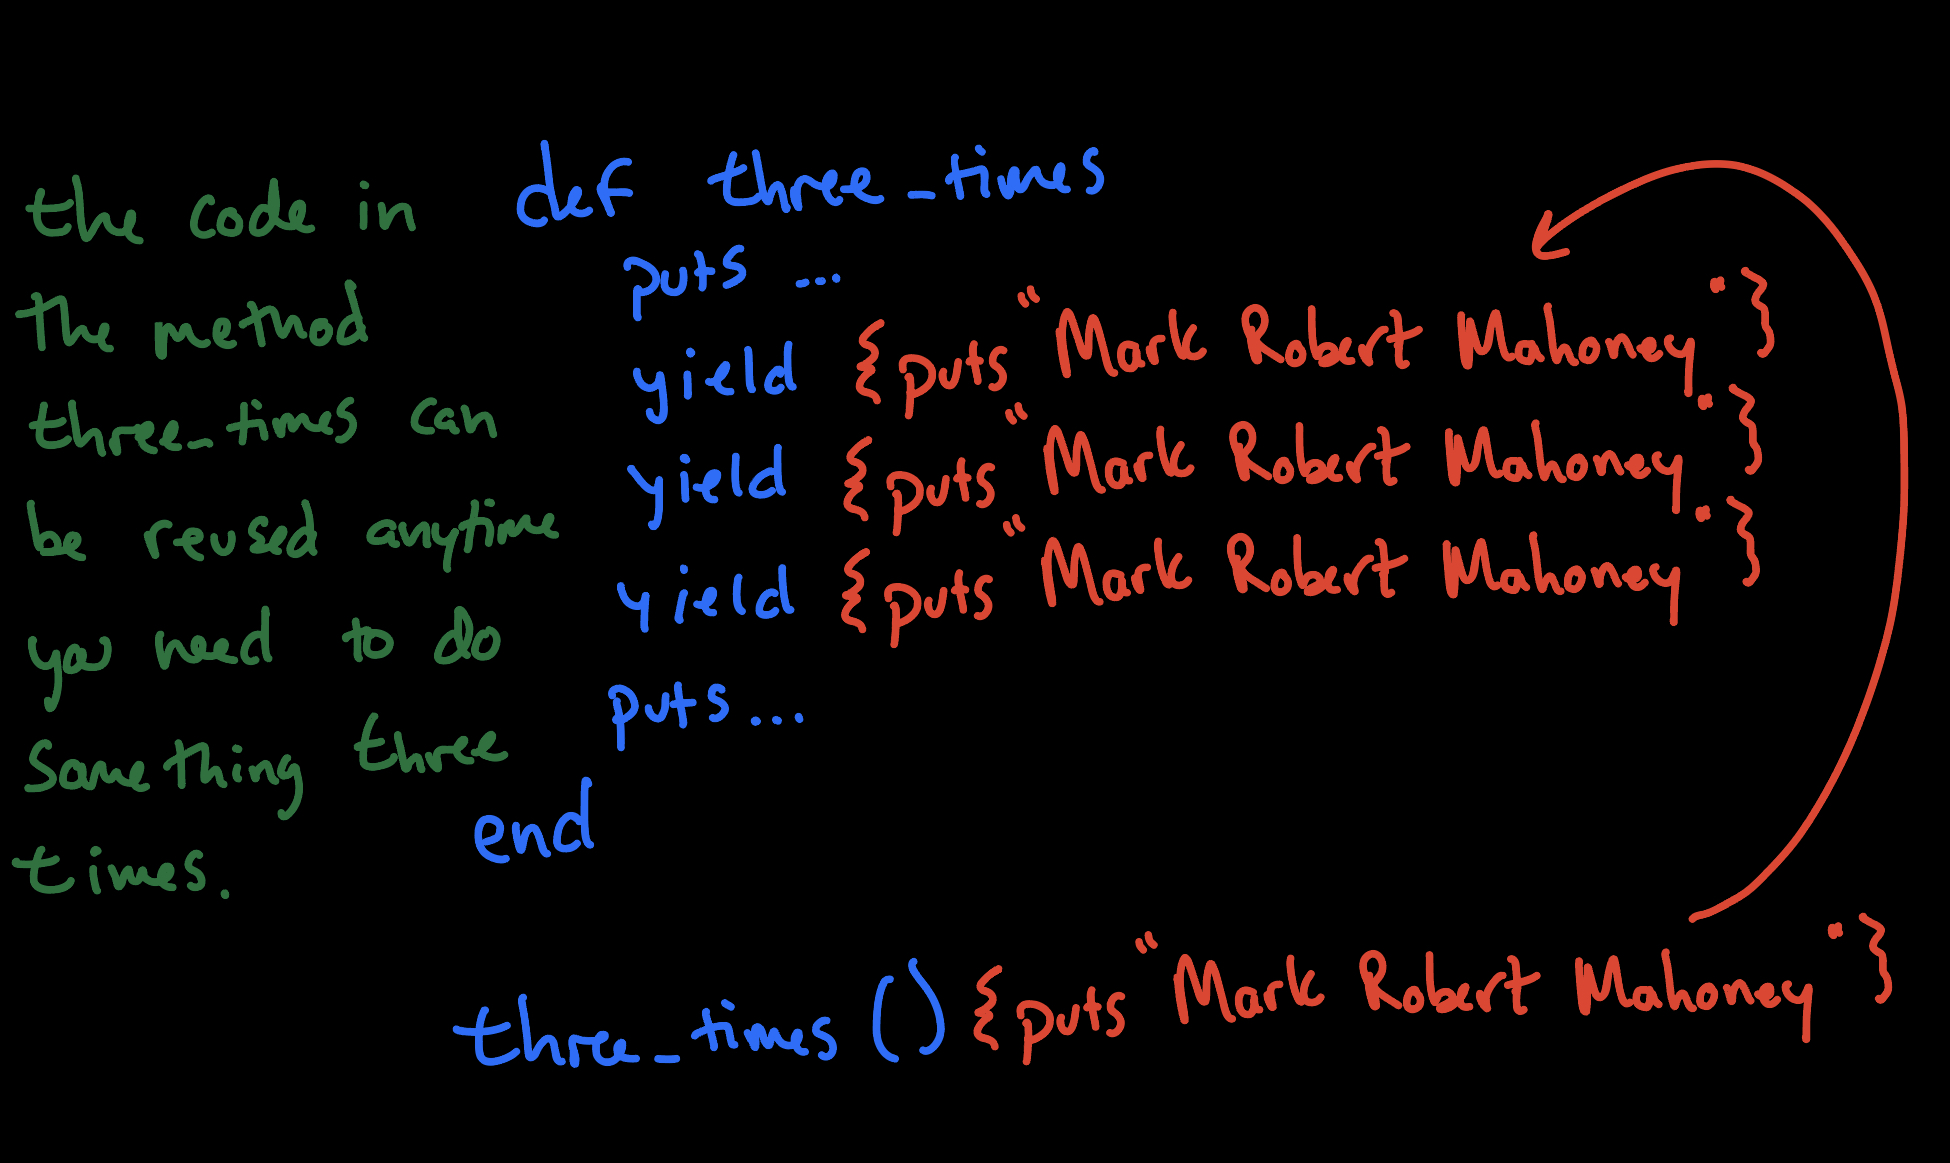 the code in
the method
three_times can
be reused anytime
you need to do
something three
times.
def three_times
puts ...
yield {puts "Mark Robert Mahoney"}
yield {puts "Mark Robert Mahoney"}
yield {puts "Mark Robert Mahoney"}
puts ...
end
three_times () {puts "Mark Robert Mahoney"}